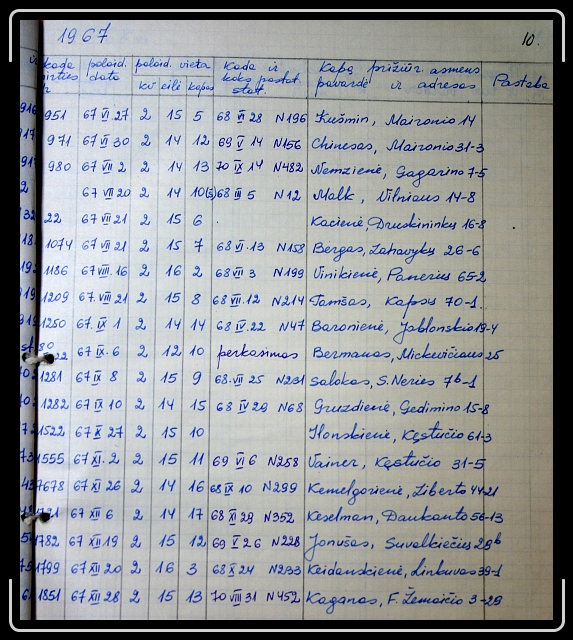 1967 10.
kada polaid. polaid. vieta Kada ir Kapą prižiūr. asmens
data kv eilė kapas koks pastat. pavardė ir adresas Pastaba
stat.
951 67 VI 27 2 15 5 68 VI 28 N196 Kušmin, Maironio 14
971 67 VI 30 2 14 12 69 V 14 N156 Chinesas, Maironio 31-3
980 67 VII 2 2 14 13 70 IX 14 N482 Nemzienė, Gagarino 7-5
2 67 VII 20 2 14 10 68 III 5 N12 Malk, Vilniaus 14-8
22 67 VII 21 2 15 6 Kacienė, Druskininkų 16-8
1074 67 VII 21 2 15 7 68 VII 13 N158 Bergas, 26-6
1186 67 VIII.16 2 16 2 68 VII 3 N199 Vinikienė, Panerių 65-2
1209 67.VIII 21 2 15 8 68 VII.12 N214 Tamšas, Kapsų 70-1
1250 67.IX 1 2 14 14 68 IV.22 N47 Baronienė, Jablonskio 19-4
67 IX.6 2 12 10 perkasimas Bermanas, Mickevičiaus 25
1281 67 IX 8 2 15 9 68.VII 25 N231 Salakas, S.Nėries 7b-1
1282 67 IX 10 2 14 15 68 IV 29 N68 Gruzdienė, Gedimino 15-8
1522 67 X 27 2 15 10 Kęstučio 61-3
1555 67 XI.2 2 15 11 69 VI 6 N258 Vainer, Kęstučio 31-5
7678 67 XI 26 2 14 16 68 IX 10 N299 Liberto 44-21
67 XII 6 2 14 17 68 XI 29 N352 Keselman, Daukanto 56-13
1782 67 XII 19 2 15 12 69 V 26 N228 Jonušas, Suvalkiečių 29b
1799 67 XII 20 2 16 3 68 X 24 N233 Keidanskienė, Linkuvos 39-1
1851 67 XII 28 2 15 13 70 VIII 31 N452 Kaganas, F. Žemaičio 3-29